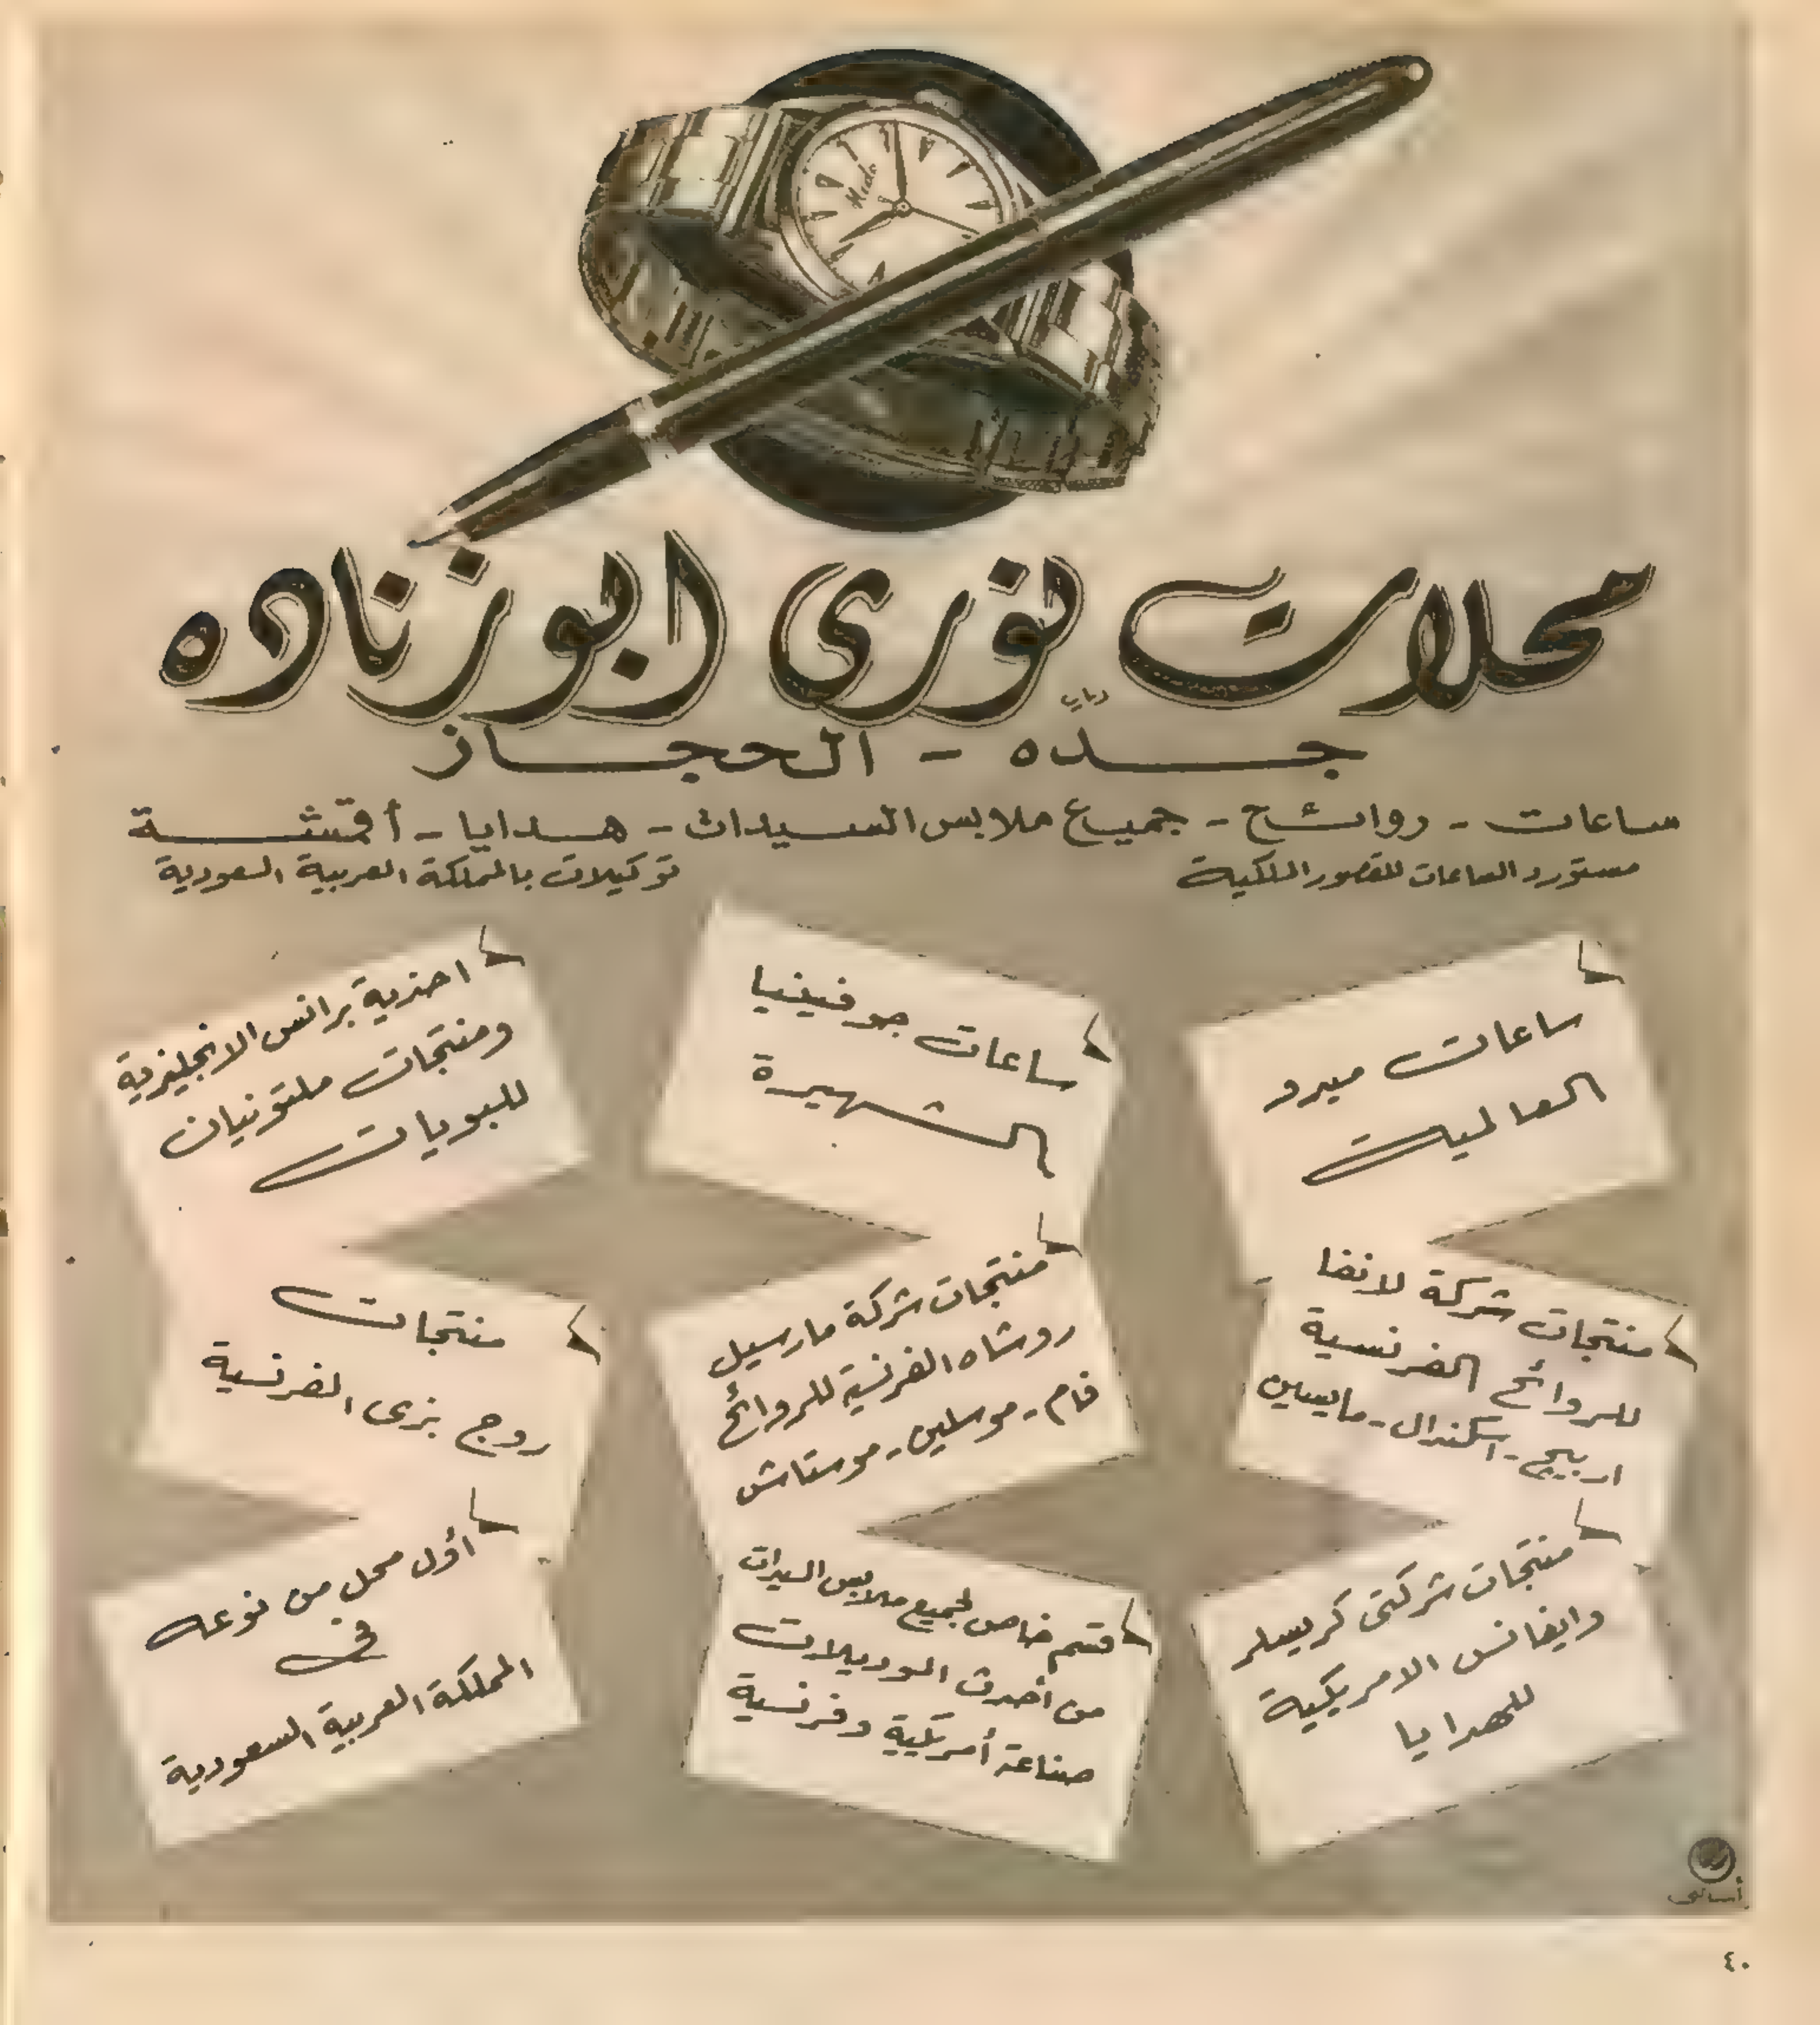 Medo
محلات نوري ابوزناده
جده - الحجاز
ساعات - روائح - جميع ملابس السيدات - هدايا - أقمشة
مستورد الساعات للقصور الملكية
توكيلات بالمملكة العربية السعودية
ساعات ميدو
العالمية
ساعات جوفينيا
الشهيرة
احذية برانس الانجليزية
ومنتجات ملتونيان
للبويات
منتجات شركة لانفا
للروائح الفرنسية
اربيج - اسكندال - مايسين
منتجات شركة مارسيل
روشاه الفرنسية للروائح
فام - موسلين - موستاش
منتجات
روج بزى الفرنسية
منتجات شركتى كريسلر
وايفانس الامريكية
للهدايا
قسم خاص لجميع ملابس السيدات
من أحدث الموديلات
صناعة أمريكية وفرنسية
أول محل من نوعه
فى
المملكة العربية السعودية
٤٠